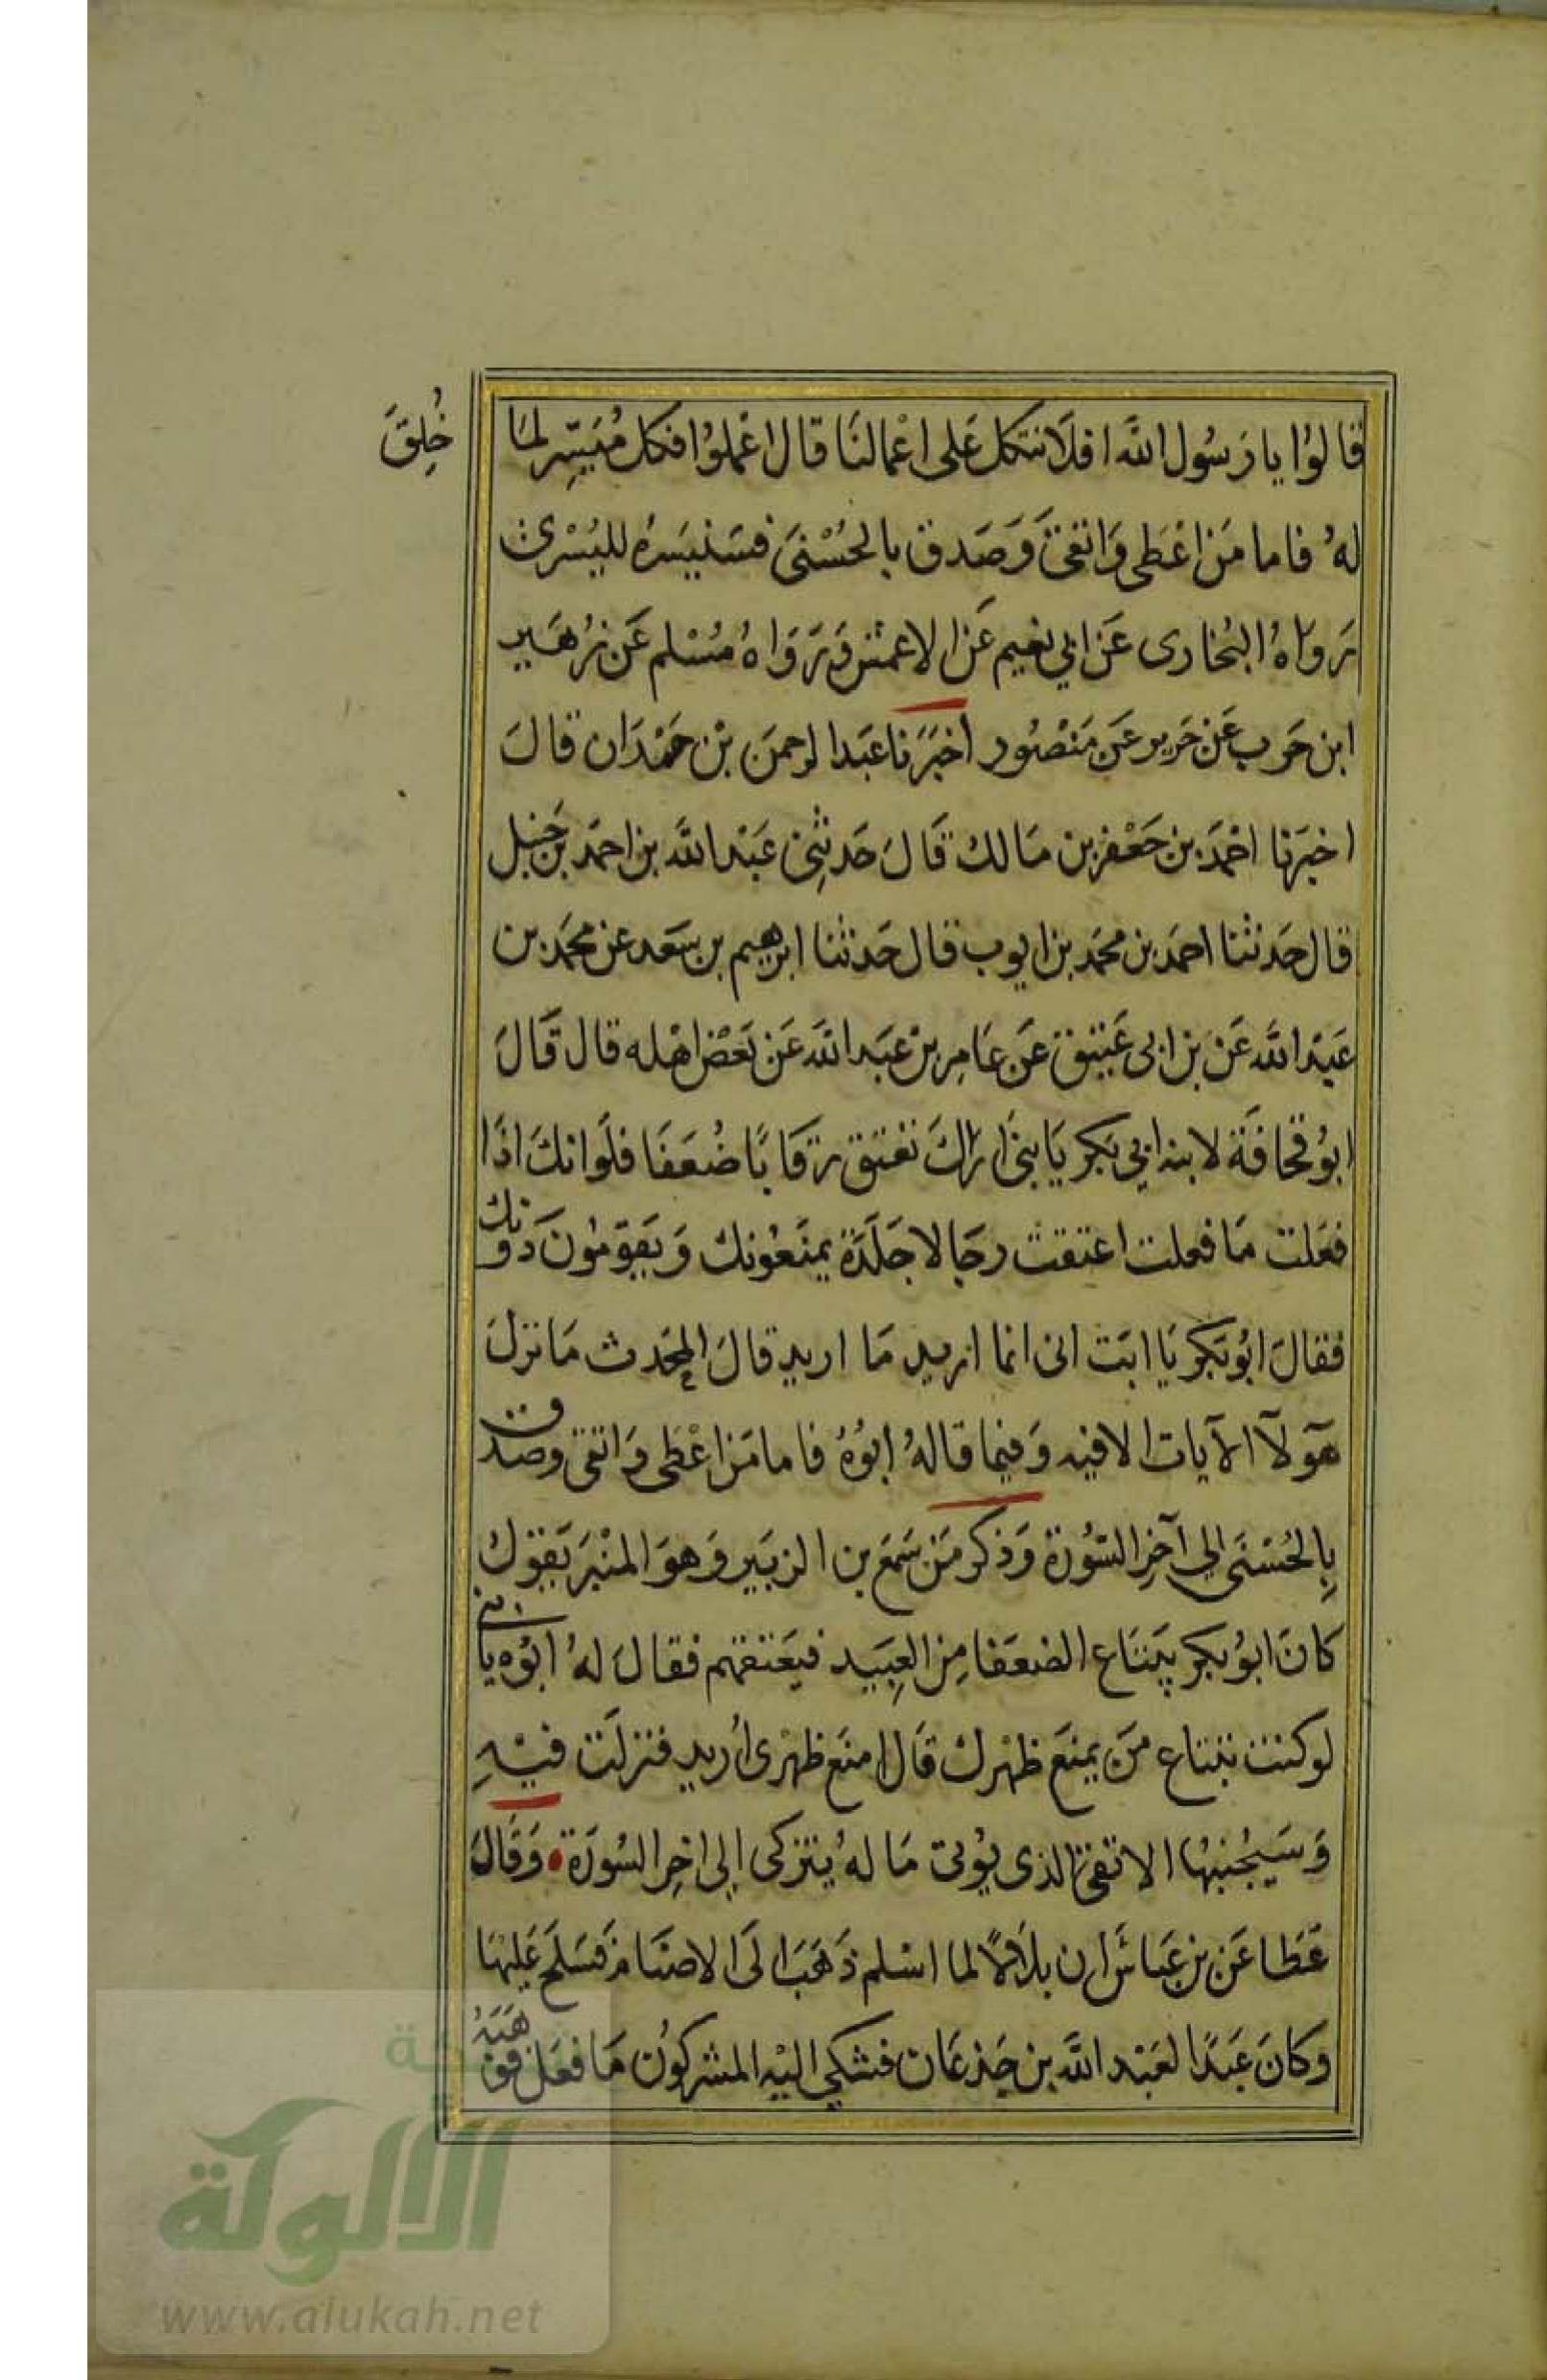 قالوا يا رسول الله افلا نتكل على اعمالنا قال اعملوا فكل ميسر لما خلق
له فاما من اعطى واتقى وصدق بالحسنى فسنيسره لليسرى
رواه البخارى عن ابي نعيم عن الاعمش ورواه مسلم عن زهير
ابن حرب عن جرير عن منصور اخبرنا عبد الرحمن بن حمدان قال
اخبرنا احمد بن جعفر بن مالك قال حدثني عبد الله بن احمد بن حنبل
قال حدثنا احمد بن محمد بن ايوب قال حدثنا ابرهيم بن سعد عن محمد بن
عبد الله عن بن ابى عتيق عن عامر بن عبد الله عن بعض اهله قال قال
ابو قحافة لابنه ابي بكر يا بنى اراك تعتق رقابا ضعفا فلو انك اذا
فعلت ما فعلت اعتقت رجالا جلدة يمنعونك ويقومون دونك
فقال ابو بكر يا ابت انى انما اريد ما اريد قال المحدث ما نزل
هولآ الآيات الا فيه وفيما قاله ابوه فاما من اعطى واتقى وصدق
بالحسنى الي آخر السورة وذكر من سمع بن الزبير وهو المنبر يقول
كان ابو بكر يبتاع الضعفا من العبيد فيعتقهم فقال له ابوه يا بنى
لو كنت تبتاع من يمنع ظهرك قال امنع ظهرى اريد فنزلت فيه
وسيجنبها الاتقى الذى يؤتى ماله يتزكى الي اخر السورة • وقال
عطا عن بن عباس ان بلالا لما اسلم ذهب الى الاصنام فسلح عليها
وكان عبدا لعبد الله بن جذعان فشكى اليه المشركون ما فعل فوهبه
الألوكة
www.alukah.net